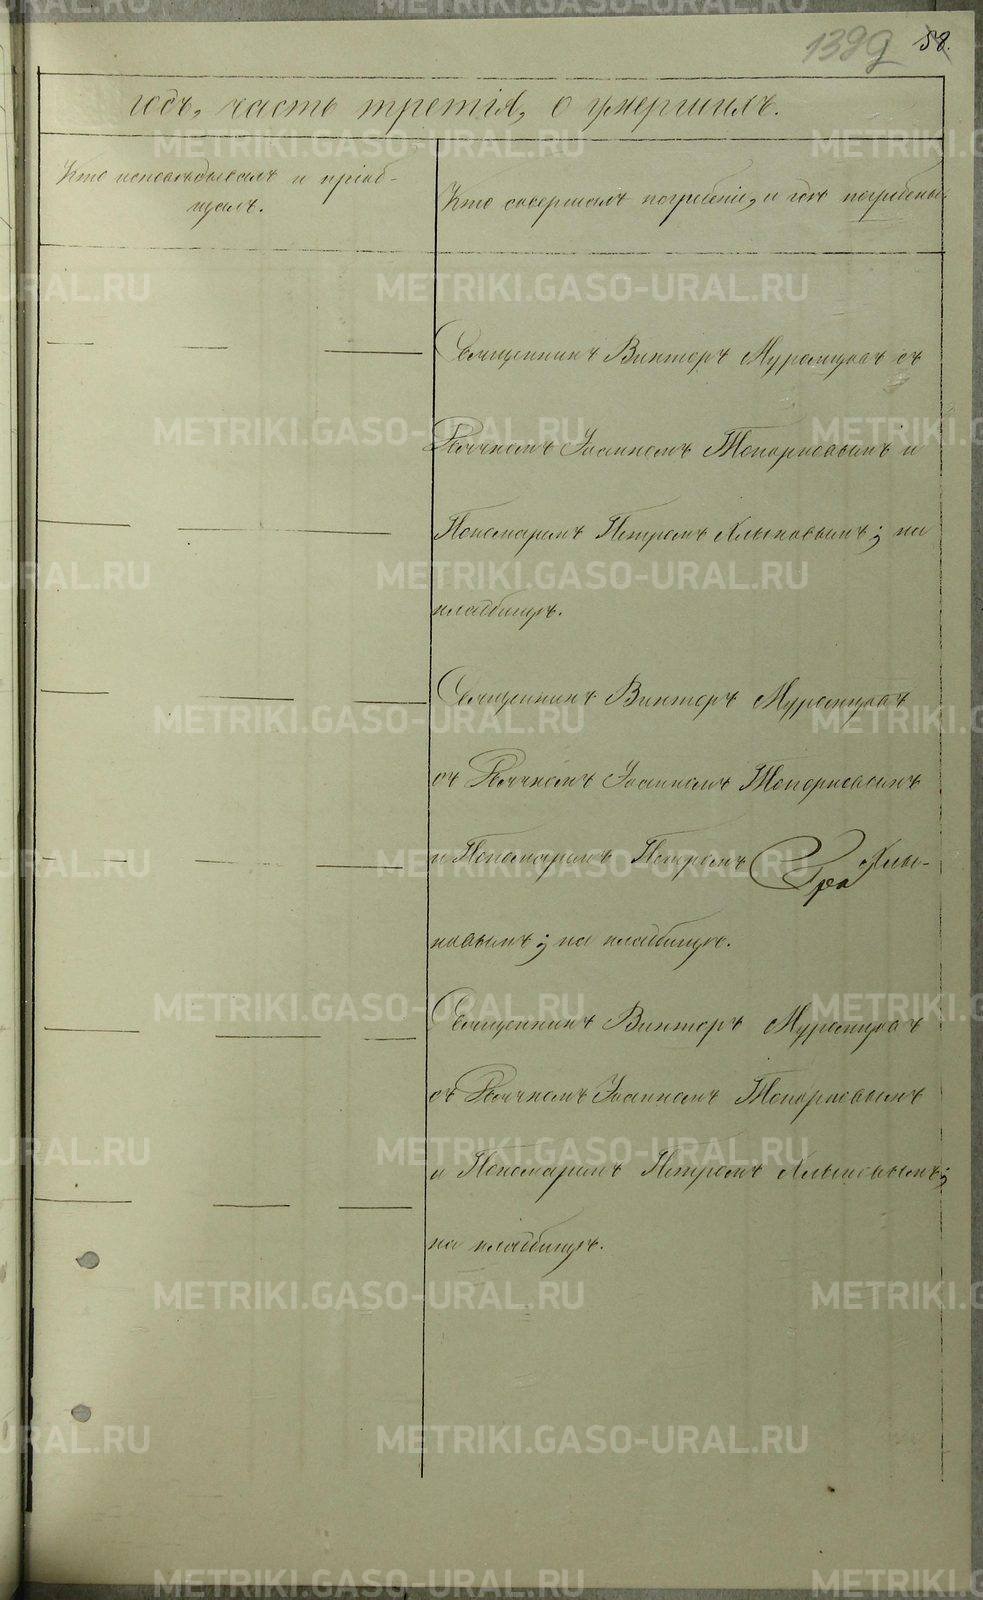 1389 58.
годъ, часть третія, о умершихъ.
Кто исповѣдывалъ и пріоб-
щалъ.
Кто совершалъ погребеніе, и гдѣ погребены.
Священникъ Викторъ Муромцовъ съ
Дьячкомъ Іоанномъ Топорковымъ и
Пономаремъ Петромъ Хлыновымъ; на
кладбищѣ.
Священникъ Викторъ Муромцовъ
съ Дьячкомъ Іоанномъ Топорковымъ
и Пономаремъ Петромъ Хлы-
новымъ; на кладбищѣ.
Священникъ Викторъ Муромцовъ
съ Дьячкомъ Іоанномъ Топорковымъ
и Пономаремъ Петромъ Хлыновымъ;
на кладбищѣ.
METRIKI.GASO-URAL.RU